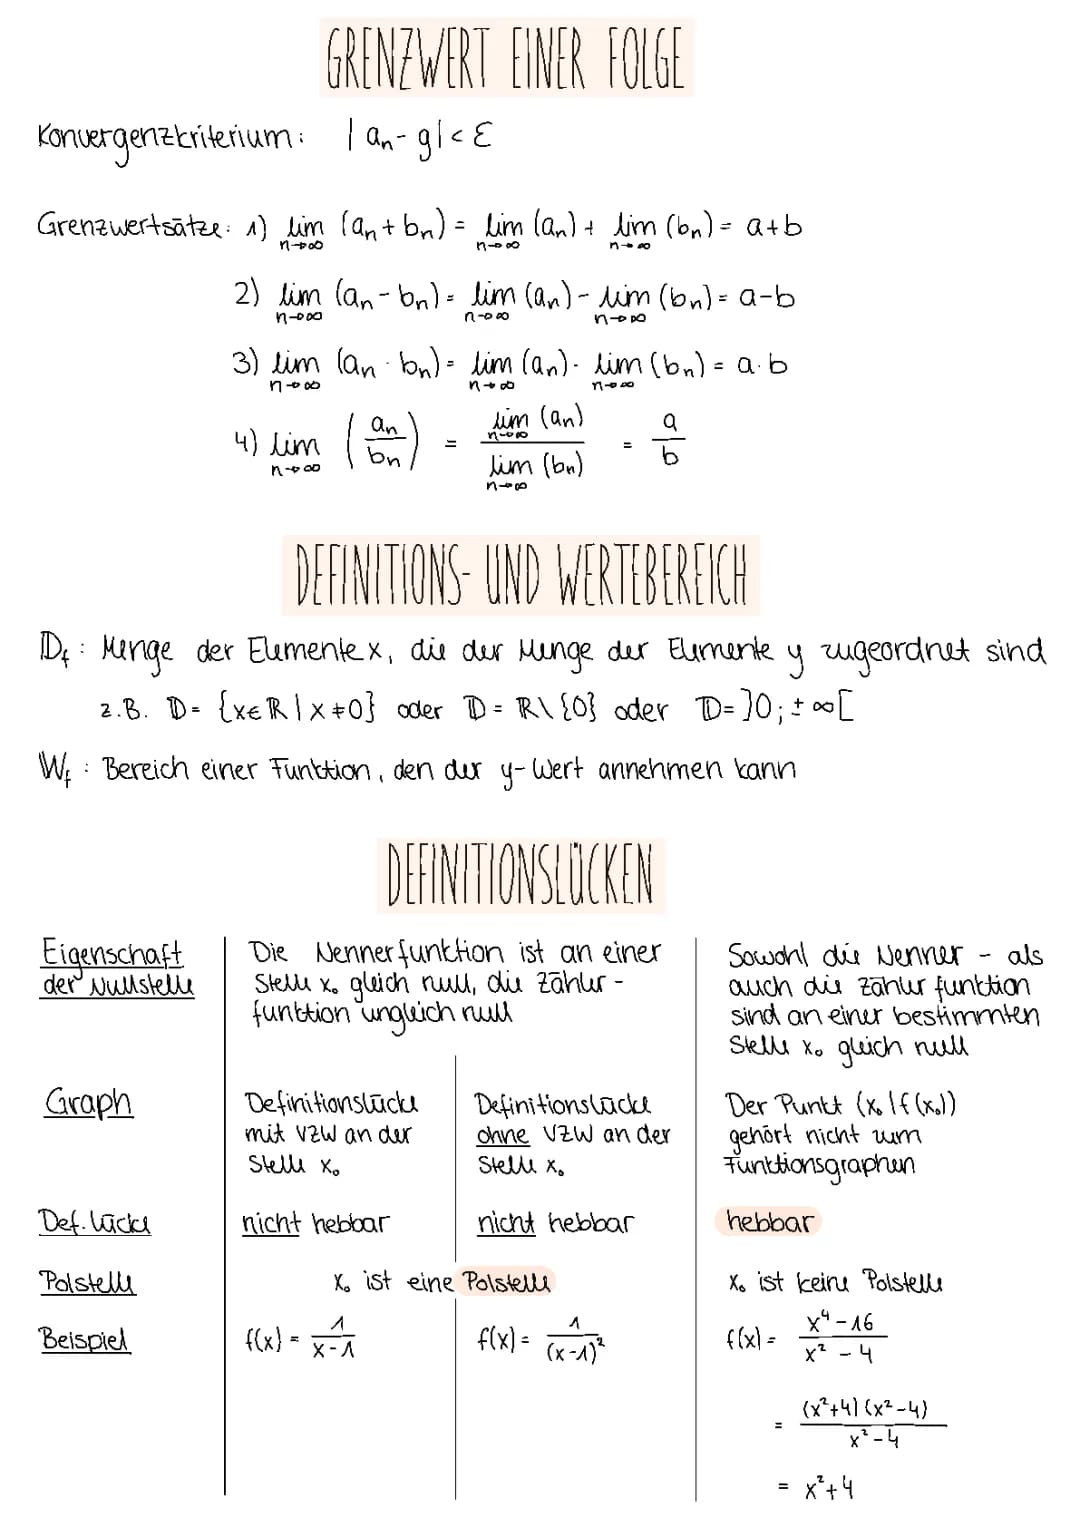 GRENZWERT EINER FOLGE
Konvergenzkriterium: |an - g| < ε
Grenzwertsätze: 1) lim n→∞ (an + bn) = lim n→∞ (an) + lim n→∞ (bn) = a+b
2) lim n→∞ (an - bn) = lim n→∞ (an) - lim n→∞ (bn) = a-b
3) lim n→∞ (an · bn) = lim n→∞ (an) · lim n→∞ (bn) = a·b
4) lim n→∞ (an/bn) = lim n→∞ (an) / lim n→∞ (bn) = a/b
DEFINITIONS- UND WERTEBEREICH
𝔻f : Menge der Elemente x, die der Menge der Elemente y zugeordnet sind
z.B. 𝔻 = {x∈ℝ | x ≠ 0} oder 𝔻 = ℝ\{0} oder 𝔻 = ]0; ±∞[
Wf : Bereich einer Funktion, den der y-Wert annehmen kann
DEFINITIONSLÜCKEN
Eigenschaft
der Nullstelle
Die Nennerfunktion ist an einer
Stelle x₀ gleich null, die Zähler-
funktion ungleich null
Sowohl die Nenner - als
auch die Zähler funktion
sind an einer bestimmten
Stelle x₀ gleich null
Graph
Definitionslücke
mit VZW an der
Stelle x₀
Definitionslücke
ohne VZW an der
Stelle x₀
Der Punkt (x₀|f(x₀))
gehört nicht zum
Funktionsgraphen
Def. lücke
nicht hebbar
nicht hebbar
hebbar
Polstelle
x₀ ist eine Polstelle
x₀ ist keine Polstelle
Beispiel
f(x) = 1/(x-1)
f(x) = 1/(x-1)²
f(x) = (x⁴-16)/(x²-4)
= (x²+4)(x²-4)/(x²-4)
= x²+4